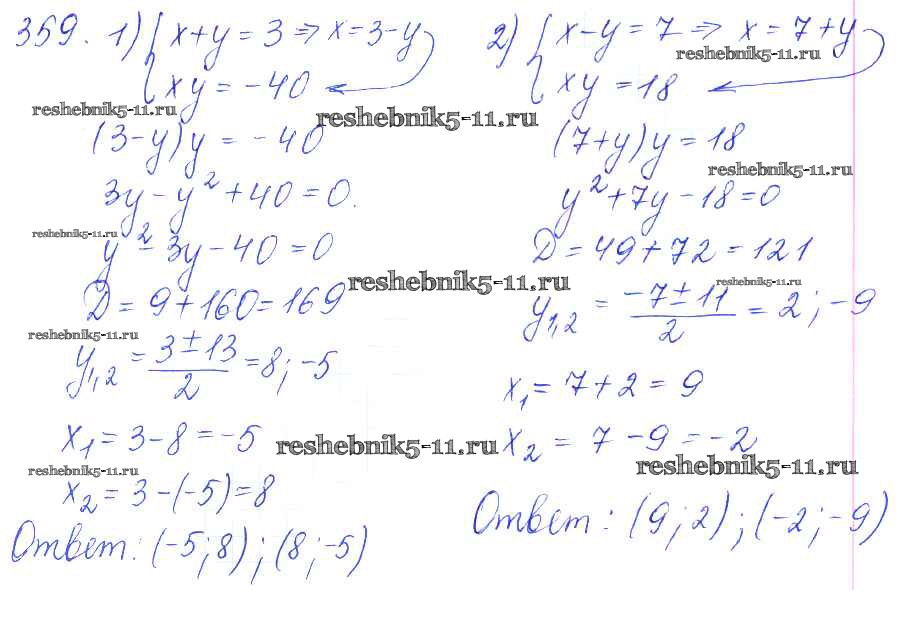 359. 1) { x+y = 3 ⇒ x = 3-y
xy = -40
reshebnik5-11.ru
reshebnik5-11.ru
(3-y)y = -40
3y - y² + 40 = 0.
reshebnik5-11.ru
y² - 3y - 40 = 0
D = 9 + 160 = 169
reshebnik5-11.ru
reshebnik5-11.ru
y₁,₂ = (3 ± 13)/2 = 8; -5
x₁ = 3 - 8 = -5
reshebnik5-11.ru
reshebnik5-11.ru
x₂ = 3 - (-5) = 8
Ответ: (-5; 8); (8; -5)
2) { x-y = 7 ⇒ x = 7+y
reshebnik5-11.ru
xy = 18
(7+y)y = 18
reshebnik5-11.ru
y² + 7y - 18 = 0
D = 49 + 72 = 121
reshebnik5-11.ru
y₁,₂ = (-7 ± 11)/2 = 2; -9
x₁ = 7 + 2 = 9
x₂ = 7 - 9 = -2
reshebnik5-11.ru
Ответ: (9; 2); (-2; -9)